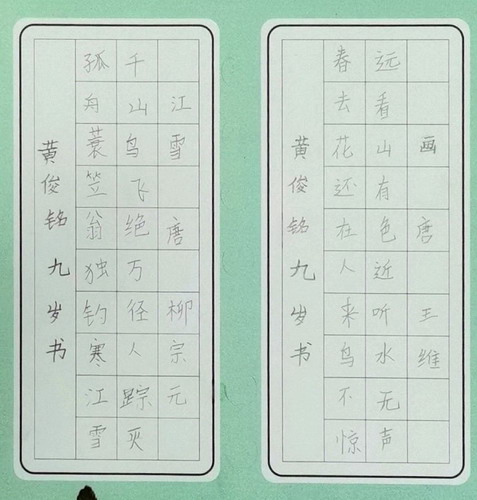 江雪 唐 柳宗元
千山鸟飞绝万径人踪灭
孤舟蓑笠翁独钓寒江雪
黄俊铭九岁书
画 唐 王维
远看山有色近听水无声
春去花还在人来鸟不惊
黄俊铭九岁书